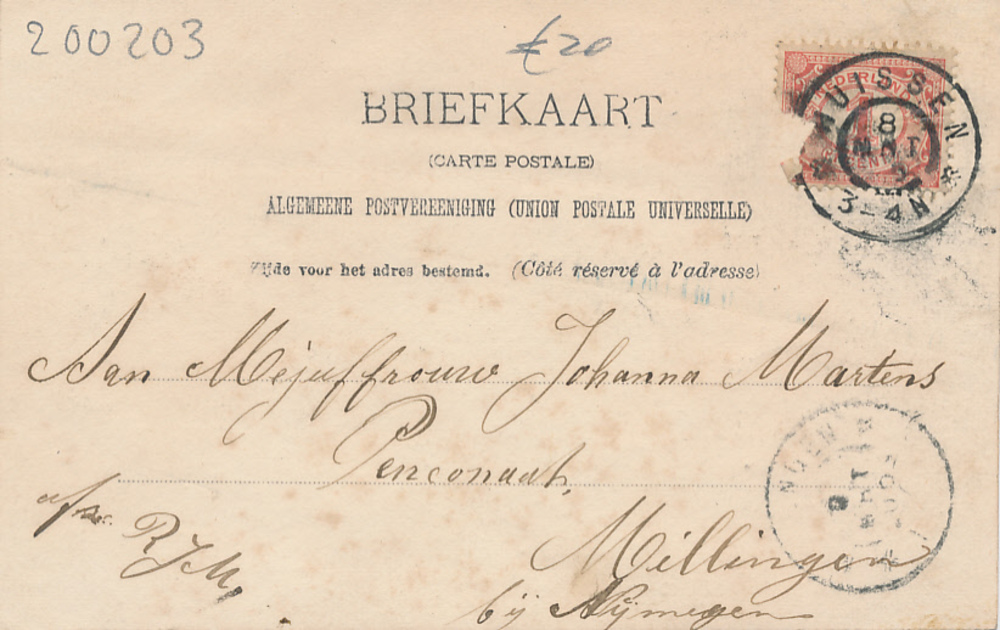 200203
€20
NEDERLAND
HUISSEN
8
3-4N
BRIEFKAART
(CARTE POSTALE)
ALGEMEENE POSTVEREENIGING (UNION POSTALE UNIVERSELLE)
Zijde voor het adres bestemd. (Côté réservé à l'adresse)
Aan Mejuffrouw Johanna Martens
Penconaat,
afz. R J M,
Millingen
bij Nijmegen